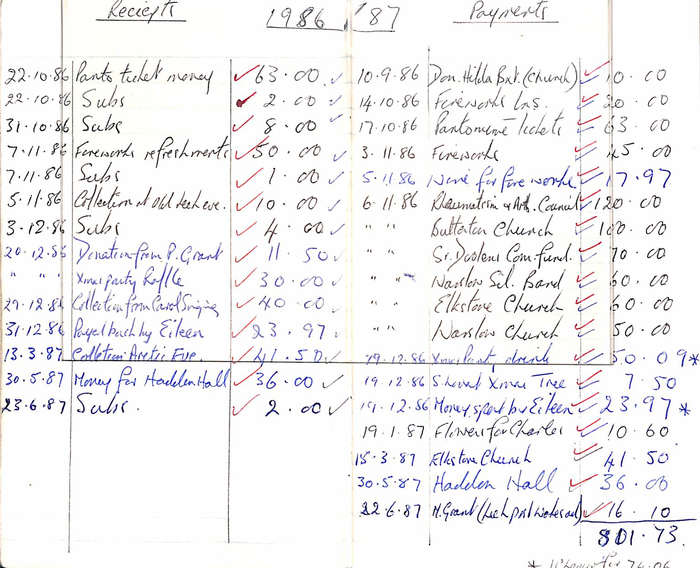 Reciepts 1986/87 Payments
22.10.86 Panto ticket money 63.00
22.10.86 Subs 2.00
31.10.86 Subs 8.00
7.11.86 Fireworks refreshments 50.00
7.11.86 Subs 1.00
5.11.86 Collection at Old Leek eve. 10.00
3.12.86 Subs 4.00
20.12.86 Donation from P. Grant 11.50
" " " Xmas party Raffle 30.00
29.12.86 Collection from Carol Singing 40.00
31.12.86 Payed back by Eileen 23.97
13.3.87 Collection Arctic Eve. 41.50
30.5.87 Money for Haddon Hall 36.00
23.6.87 Subs. 2.00
10.9.86 Don. Hilda Bxt. (Church) 10.00
14.10.86 Fireworks Ins. 20.00
17.10.86 Pantomime tickets 63.00
3.11.86 Fireworks 45.00
5.11.86 for fireworks 17.97
6.11.86 Rheumatism & Arth. Council 120.00
" " Butterton Church 100.00
St. Com. fund. 70.00
" " Warslow Sil. Band 60.00
Elkstone Church 60.00
" " Warslow Church 50.00
19.12.86 Xmas Part. drink 50.09*
19.12.86 Xmas Tree 7.50
19.12.86 Money spent by Eileen 23.97 *
19.1.87 Flowers for Charles 10.60
15.3.87 Elkstone Church 41.50
30.5.87 Haddon Hall 36.00
22.6.87 M. Grant (Leek post ad) 16.10
801.73.
* for 74.06